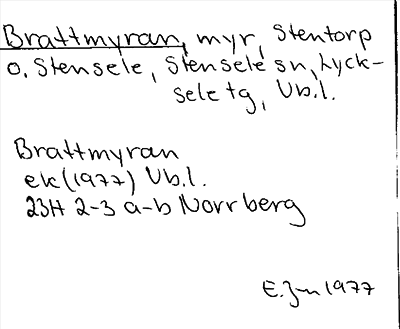 Brattmyran, myr, Stentorp
o. Stensele, Stensele sn, Lyck-
sele tg, Vb.l.
Brattmyran
ek (1977) Vb.l.
23H 2-3 a-b Norrberg
E. Jn 1977